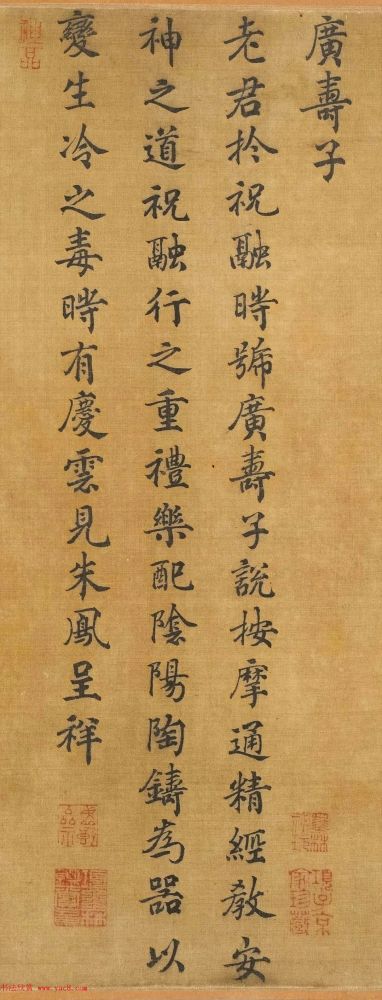 廣壽子
老君扵祝融時號廣壽子說按摩通精經教安
神之道祝融行之重禮樂配陰陽陶鑄為器以
變生冷之毒時有慶雲見朱鳳呈祥
书法欣赏 www.yac8.com